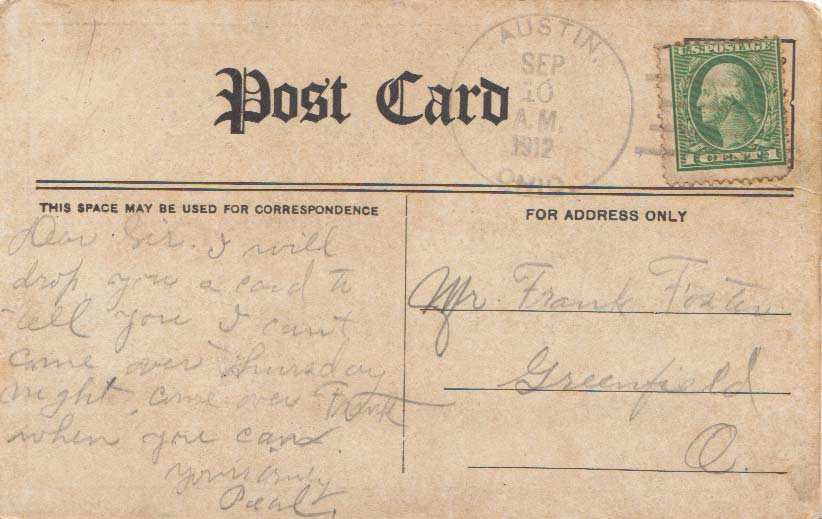 Post Card
AUSTIN,
SEP
10
A.M.
1912
OHIO.
U.S. POSTAGE
1 CENT 1
THIS SPACE MAY BE USED FOR CORRESPONDENCE
FOR ADDRESS ONLY
Dear Sir. I will
drop you a card to
tell you I cant
come over Thursday
night. come over Frank
when you can.
Yours truly
Pearl.
Mr. Frank Foster
Greenfield
O.